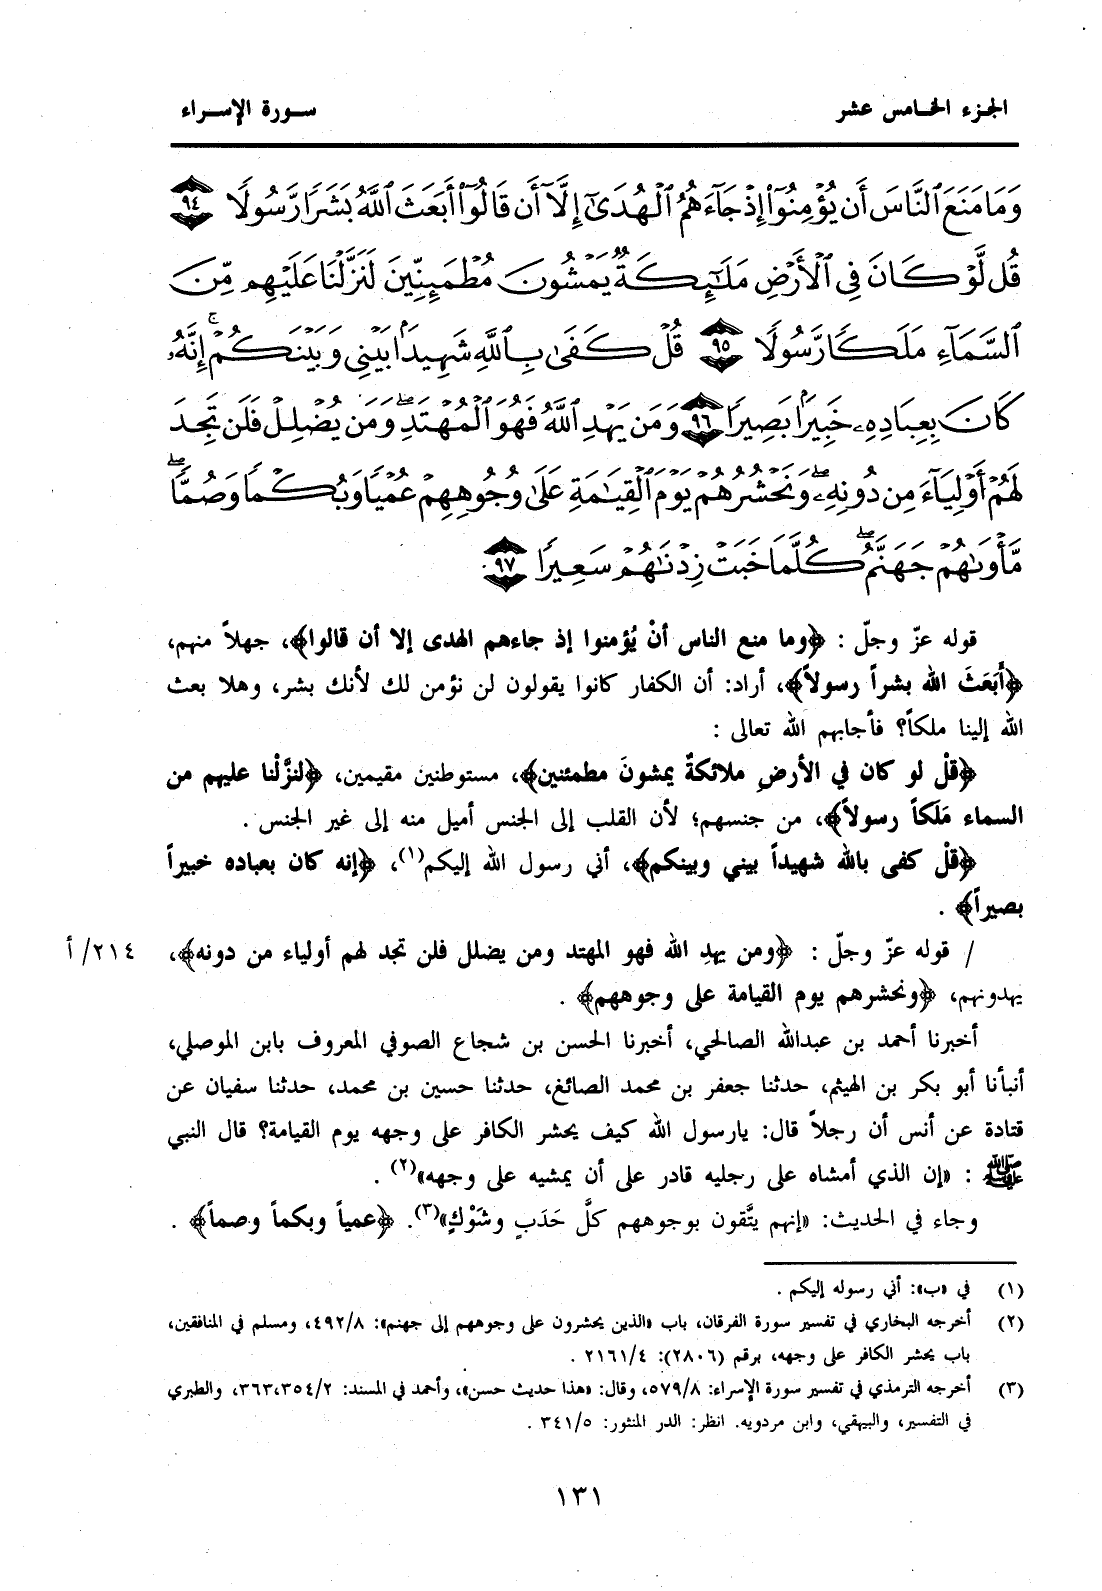 الجزء الخامس عشر
سورة الإسراء
وَمَا مَنَعَ ٱلنَّاسَ أَن يُؤْمِنُوٓا۟ إِذْ جَآءَهُمُ ٱلْهُدَىٰٓ إِلَّآ أَن قَالُوٓا۟ أَبَعَثَ ٱللَّهُ بَشَرًا رَّسُولًا ﴿٩٤﴾
قُل لَّوْ كَانَ فِى ٱلْأَرْضِ مَلَـٰٓئِكَةٌ يَمْشُونَ مُطْمَئِنِّينَ لَنَزَّلْنَا عَلَيْهِم مِّنَ
ٱلسَّمَآءِ مَلَكًا رَّسُولًا ﴿٩٥﴾ قُلْ كَفَىٰ بِٱللَّهِ شَهِيدًۢا بَيْنِى وَبَيْنَكُمْ ۚ إِنَّهُۥ
كَانَ بِعِبَادِهِۦ خَبِيرًۢا بَصِيرًا ﴿٩٦﴾ وَمَن يَهْدِ ٱللَّهُ فَهُوَ ٱلْمُهْتَدِ ۖ وَمَن يُضْلِلْ فَلَن تَجِدَ
لَهُمْ أَوْلِيَآءَ مِن دُونِهِۦ ۖ وَنَحْشُرُهُمْ يَوْمَ ٱلْقِيَـٰمَةِ عَلَىٰ وُجُوهِهِمْ عُمْيًا وَبُكْمًا وَصُمًّا ۖ
مَّأْوَىٰهُمْ جَهَنَّمُ ۖ كُلَّمَا خَبَتْ زِدْنَـٰهُمْ سَعِيرًا ﴿٩٧﴾
قوله عزّ وجلّ : ﴿وما منع الناس أنْ يُؤمنوا إذ جاءهم الهدى إلا أن قالوا﴾، جهلاً منهم،
﴿أَبَعَثَ الله بشراً رسولاً﴾، أراد: أن الكفار كانوا يقولون لن نؤمن لك لأنك بشر، وهلا بعث
الله إلينا ملكاً؟ فأجابهم الله تعالى :
﴿قلْ لو كان في الأرضِ ملائكةٌ يمشونَ مطمئنين﴾، مستوطنين مقيمين، ﴿لنزَّلْنا عليهم من
السماء مَلَكاً رسولاً﴾، من جنسهم؛ لأن القلب إلى الجنس أميل منه إلى غير الجنس .
﴿قلْ كفى بالله شهيداً بيني وبينكم﴾، أني رسول الله إليكم(١)، ﴿إنه كان بعباده خبيراً
بصيراً﴾ .
/ قوله عزّ وجلّ : ﴿ومن يهدِ الله فهو المهتد ومن يضلل فلن تجد لهم أولياء من دونه﴾، ٢١٤/ أ
يهدونهم، ﴿ونحشرهم يوم القيامة على وجوههم﴾ .
أخبرنا أحمد بن عبدالله الصالحي، أخبرنا الحسن بن شجاع الصوفي المعروف بابن الموصلي،
أنبأنا أبو بكر بن الهيثم، حدثنا جعفر بن محمد الصائغ، حدثنا حسين بن محمد، حدثنا سفيان عن
قتادة عن أنس أن رجلاً قال: يارسول الله كيف يحشر الكافر على وجهه يوم القيامة؟ قال النبي
ﷺ : «إن الذي أمشاه على رجليه قادر على أن يمشيه على وجهه»(٢) .
وجاء في الحديث: «إنهم يتَّقون بوجوههم كلَّ حَدَبٍ وشَوْكٍ»(٣). ﴿عمياً وبكماً وصماً﴾ .
(١) في «ب»: أني رسوله إليكم .
(٢) أخرجه البخاري في تفسير سورة الفرقان، باب «الذين يحشرون على وجوههم إلى جهنم»: ٤٩٢/٨، ومسلم في المنافقين،
باب يحشر الكافر على وجهه، برقم (٢٨٠٦): ٢١٦١/٤ .
(٣) أخرجه الترمذي في تفسير سورة الإسراء: ٥٧٩/٨، وقال: «هذا حديث حسن»، وأحمد في المسند: ٣٦٣،٣٥٤/٢، والطبري
في التفسير، والبيهقي، وابن مردويه. انظر: الدر المنثور: ٣٤١/٥ .
١٣١